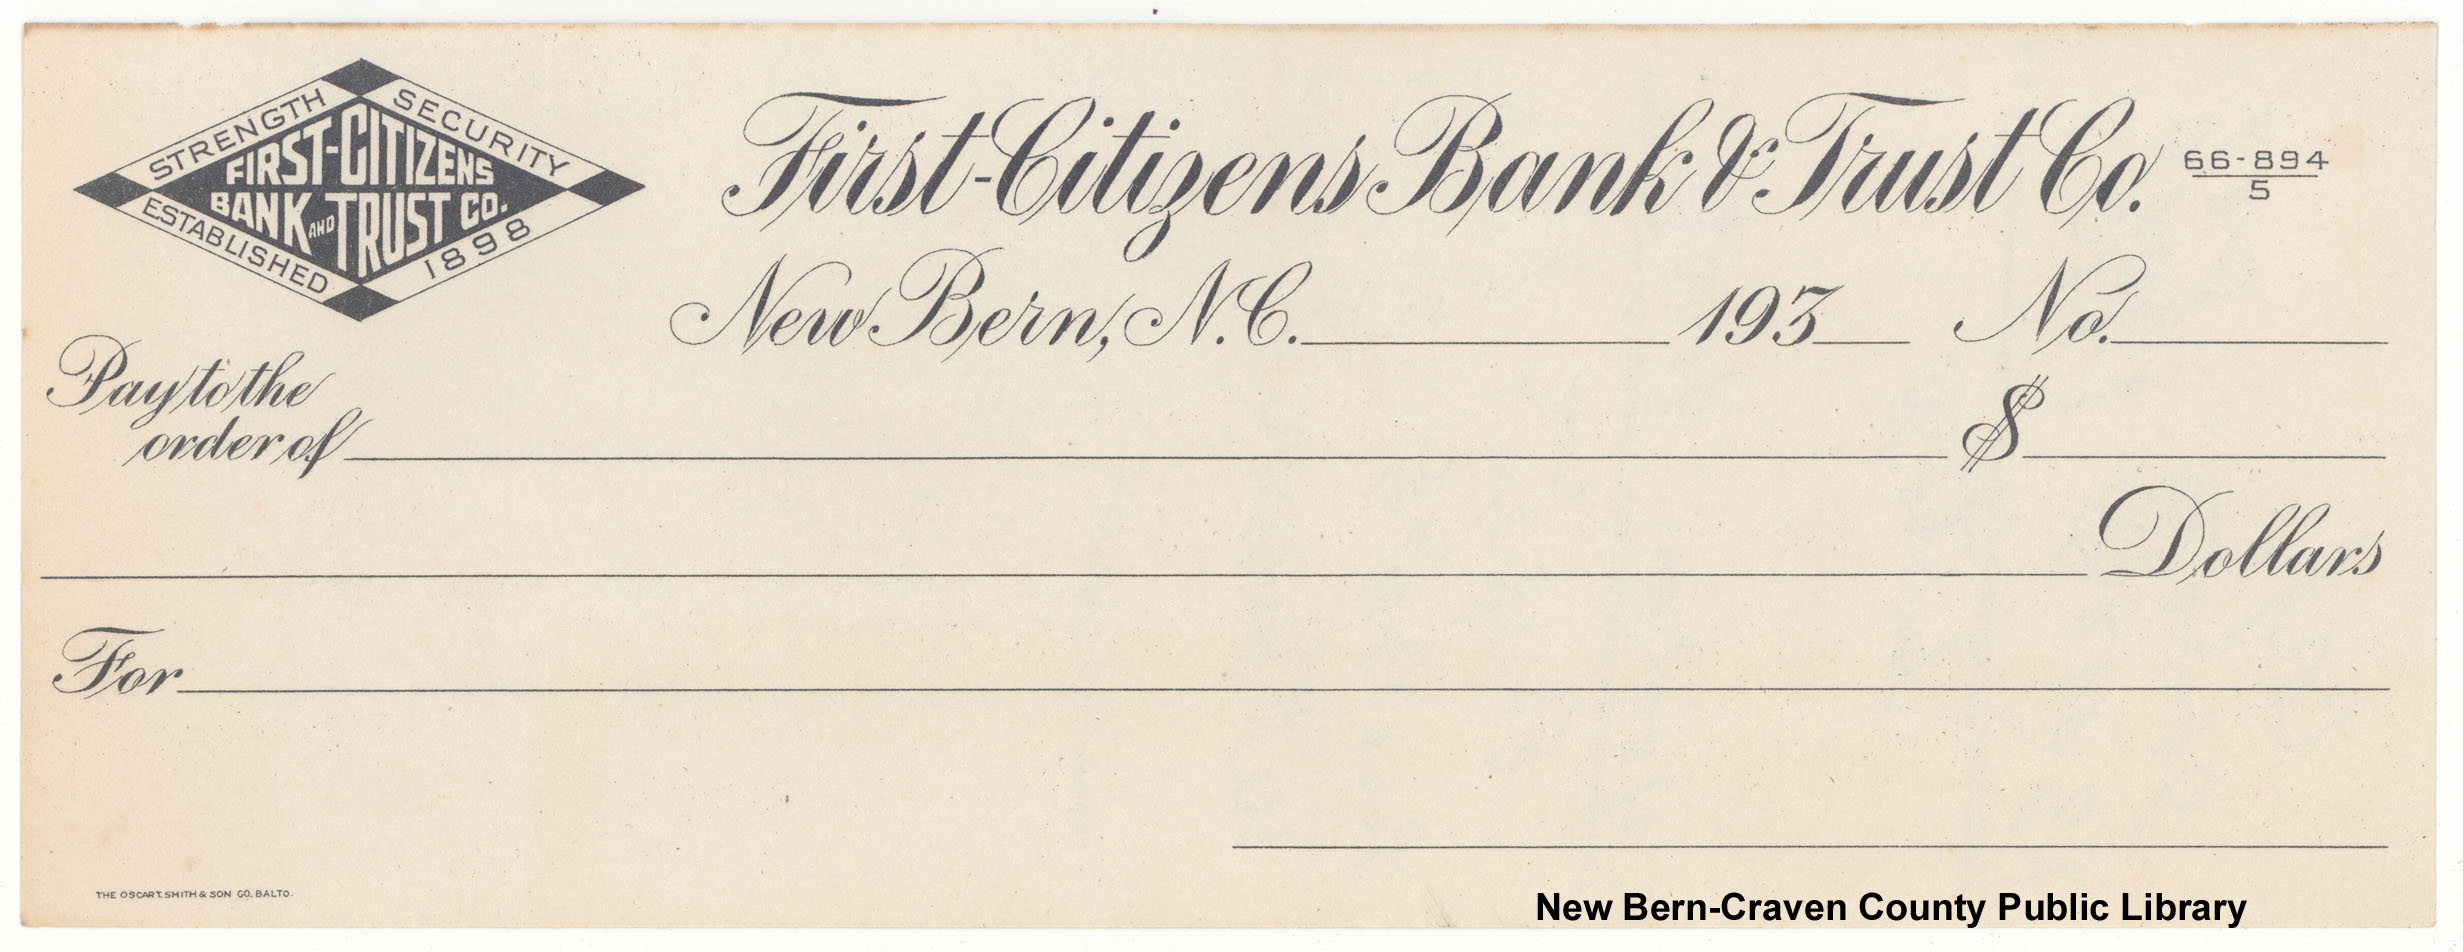 STRENGTH SECURITY
FIRST-CITIZENS
BANK AND TRUST CO.
ESTABLISHED 1898
First-Citizens Bank & Trust Co. 66-894
5
New Bern, N.C. 193 No.
Pay to the
order of $
Dollars
For
THE OSCAR T. SMITH & SON CO. BALTO.
New Bern-Craven County Public Library